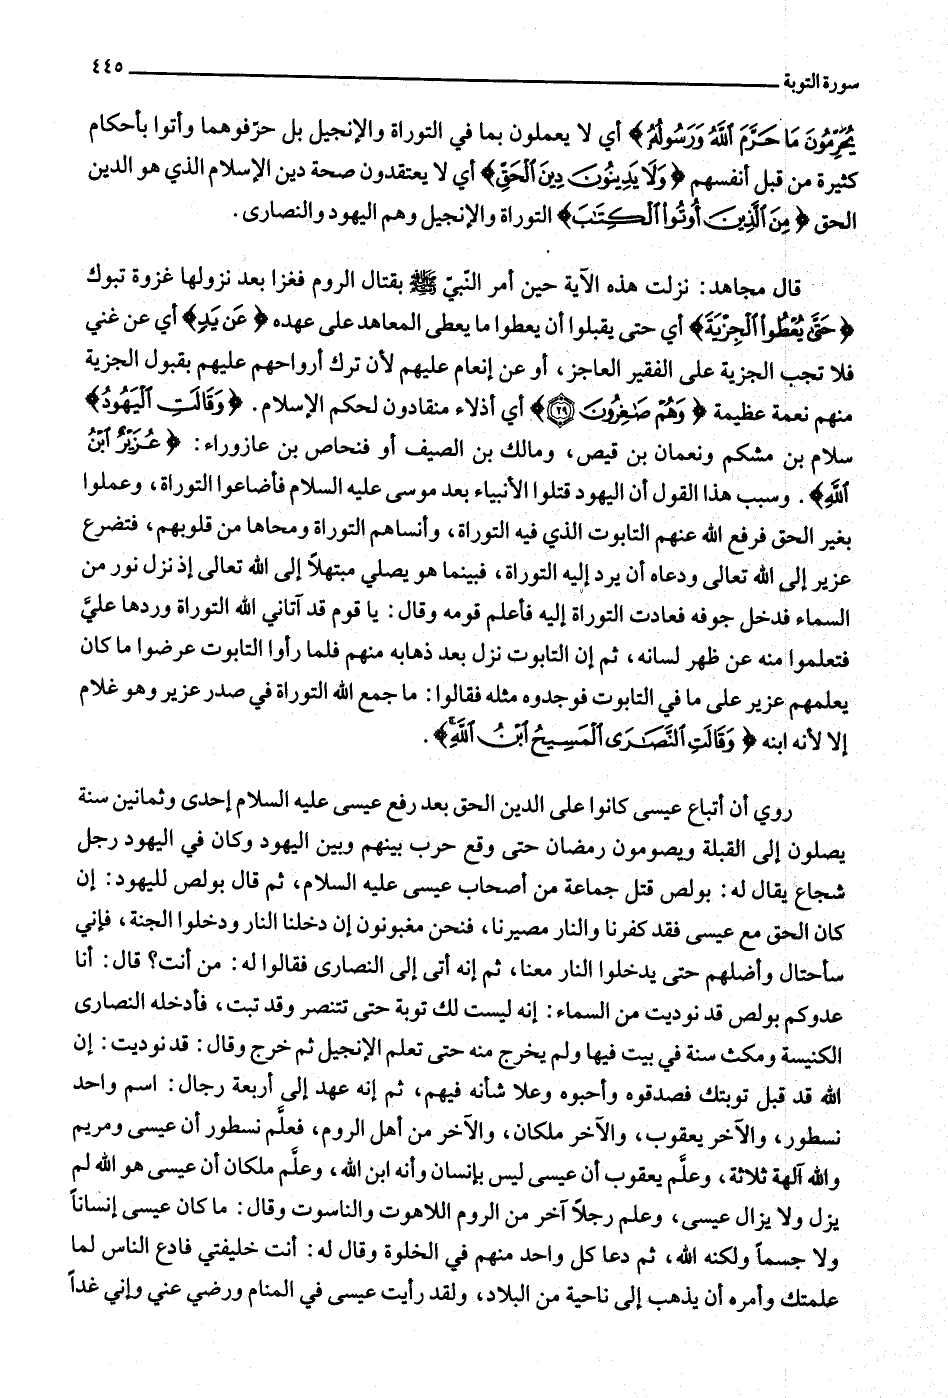 سورة التوبة ٤٤٥
يُحَرِّمُونَ مَا حَرَّمَ اللَّهُ وَرَسُولُهُ﴾ أي لا يعملون بما في التوراة والإنجيل بل حرّفوهما وأتوا بأحكام
كثيرة من قبل أنفسهم ﴿وَلَا يَدِينُونَ دِينَ الْحَقِّ﴾ أي لا يعتقدون صحة دين الإسلام الذي هو الدين
الحق ﴿مِنَ الَّذِينَ أُوتُوا الْكِتَبَ﴾ التوراة والإنجيل وهم اليهود والنصارى.
قال مجاهد: نزلت هذه الآية حين أمر النّبيّ ﷺ بقتال الروم فغزا بعد نزولها غزوة تبوك
﴿حَتَّى يُعْطُوا الْجِزْيَةَ﴾ أي حتى يقبلوا أن يعطوا ما يعطى المعاهد على عهده ﴿عَن يَدٍ﴾ أي عن غني
فلا تجب الجزية على الفقير العاجز، أو عن إنعام عليهم لأن ترك أرواحهم عليهم بقبول الجزية
منهم نعمة عظيمة ﴿وَهُمْ صَغِرُونَ ٢٩﴾ أي أذلاء منقادون لحكم الإسلام. ﴿وَقَالَتِ الْيَهُودُ﴾
سلام بن مشكم ونعمان بن قيص، ومالك بن الصيف أو فنحاص بن عازوراء: ﴿عُزَيْرٌ ابْنُ
اللَّهِ﴾. وسبب هذا القول أن اليهود قتلوا الأنبياء بعد موسى عليه السلام فأضاعوا التوراة، وعملوا
بغير الحق فرفع الله عنهم التابوت الذي فيه التوراة، وأنساهم التوراة ومحاها من قلوبهم، فتضرع
عزير إلى الله تعالى ودعاه أن يرد إليه التوراة، فبينما هو يصلي مبتهلاً إلى الله تعالى إذ نزل نور من
السماء فدخل جوفه فعادت التوراة إليه فأعلم قومه وقال: يا قوم قد آتاني الله التوراة وردها عليَّ
فتعلموا منه عن ظهر لسانه، ثم إن التابوت نزل بعد ذهابه منهم فلما رأوا التابوت عرضوا ما كان
يعلمهم عزير على ما في التابوت فوجدوه مثله فقالوا: ما جمع الله التوراة في صدر عزير وهو غلام
إلا لأنه ابنه ﴿وَقَالَتِ النَّصَرَى الْمَسِيحُ ابْنُ اللَّهِ﴾.
روي أن أتباع عيسى كانوا على الدين الحق بعد رفع عيسى عليه السلام إحدى وثمانين سنة
يصلون إلى القبلة ويصومون رمضان حتى وقع حرب بينهم وبين اليهود وكان في اليهود رجل
شجاع يقال له: بولص قتل جماعة من أصحاب عيسى عليه السلام، ثم قال بولص لليهود: إن
كان الحق مع عيسى فقد كفرنا والنار مصيرنا، فنحن مغبونون إن دخلنا النار ودخلوا الجنة، فإني
سأحتال وأضلهم حتى يدخلوا النار معنا، ثم إنه أتى إلى النصارى فقالوا له: من أنت؟ قال: أنا
عدوكم بولص قد نوديت من السماء: إنه ليست لك توبة حتى تتنصر وقد تبت، فأدخله النصارى
الكنيسة ومكث سنة في بيت فيها ولم يخرج منه حتى تعلم الإنجيل ثم خرج وقال: قد نوديت: إن
الله قد قبل توبتك فصدقوه وأحبوه وعلا شأنه فيهم، ثم إنه عهد إلى أربعة رجال: اسم واحد
نسطور، والآخر يعقوب، والآخر ملكان، والآخر من أهل الروم، فعلَّم نسطور أن عيسى ومريم
والله آلهة ثلاثة، وعلَّم يعقوب أن عيسى ليس بإنسان وأنه ابن الله، وعلَّم ملكان أن عيسى هو الله لم
يزل ولا يزال عيسى، وعلم رجلاً آخر من الروم اللاهوت والناسوت وقال: ما كان عيسى إنساناً
ولا جسماً ولكنه الله، ثم دعا كل واحد منهم في الخلوة وقال له: أنت خليفتي فادع الناس لما
علمتك وأمره أن يذهب إلى ناحية من البلاد، ولقد رأيت عيسى في المنام ورضي عني وإني غداً